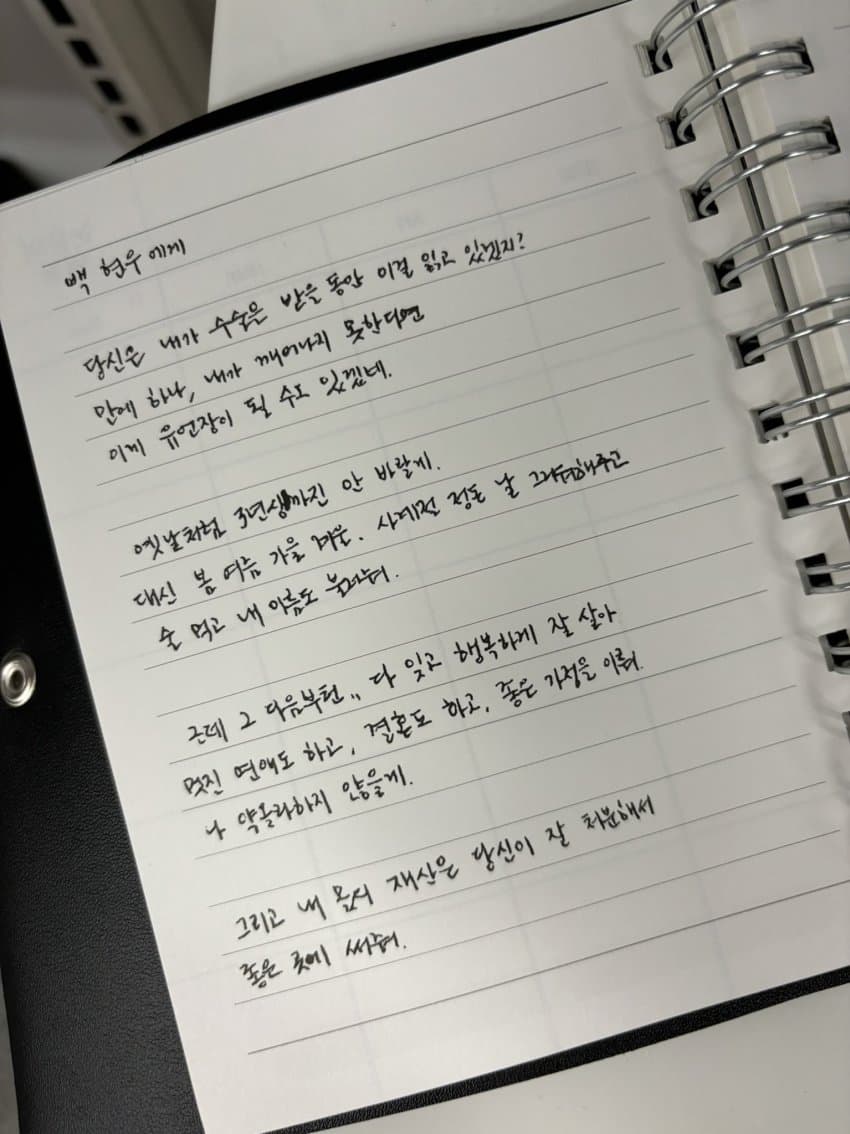 백 현우에게
당신은 내가 수술을 받을 동안 이걸 읽고 있겠지?
만에 하나, 내가 깨어나지 못한다면
이게 유언장이 될 수도 있겠네.
옛날처럼 3년상까진 안 바랄게.
대신 봄 여름 가을 겨울. 사계절 정돈 날 그리워해주고
술 먹고 내 이름도 불러줘.
근데 그 다음부턴.. 다 잊고 행복하게 잘 살아
멋진 연애도 하고, 결혼도 하고, 좋은 가정을 이뤄.
나 약올라하지 않을게.
그리고 내 몫의 재산은 당신이 잘 처분해서
좋은 곳에 써줘.